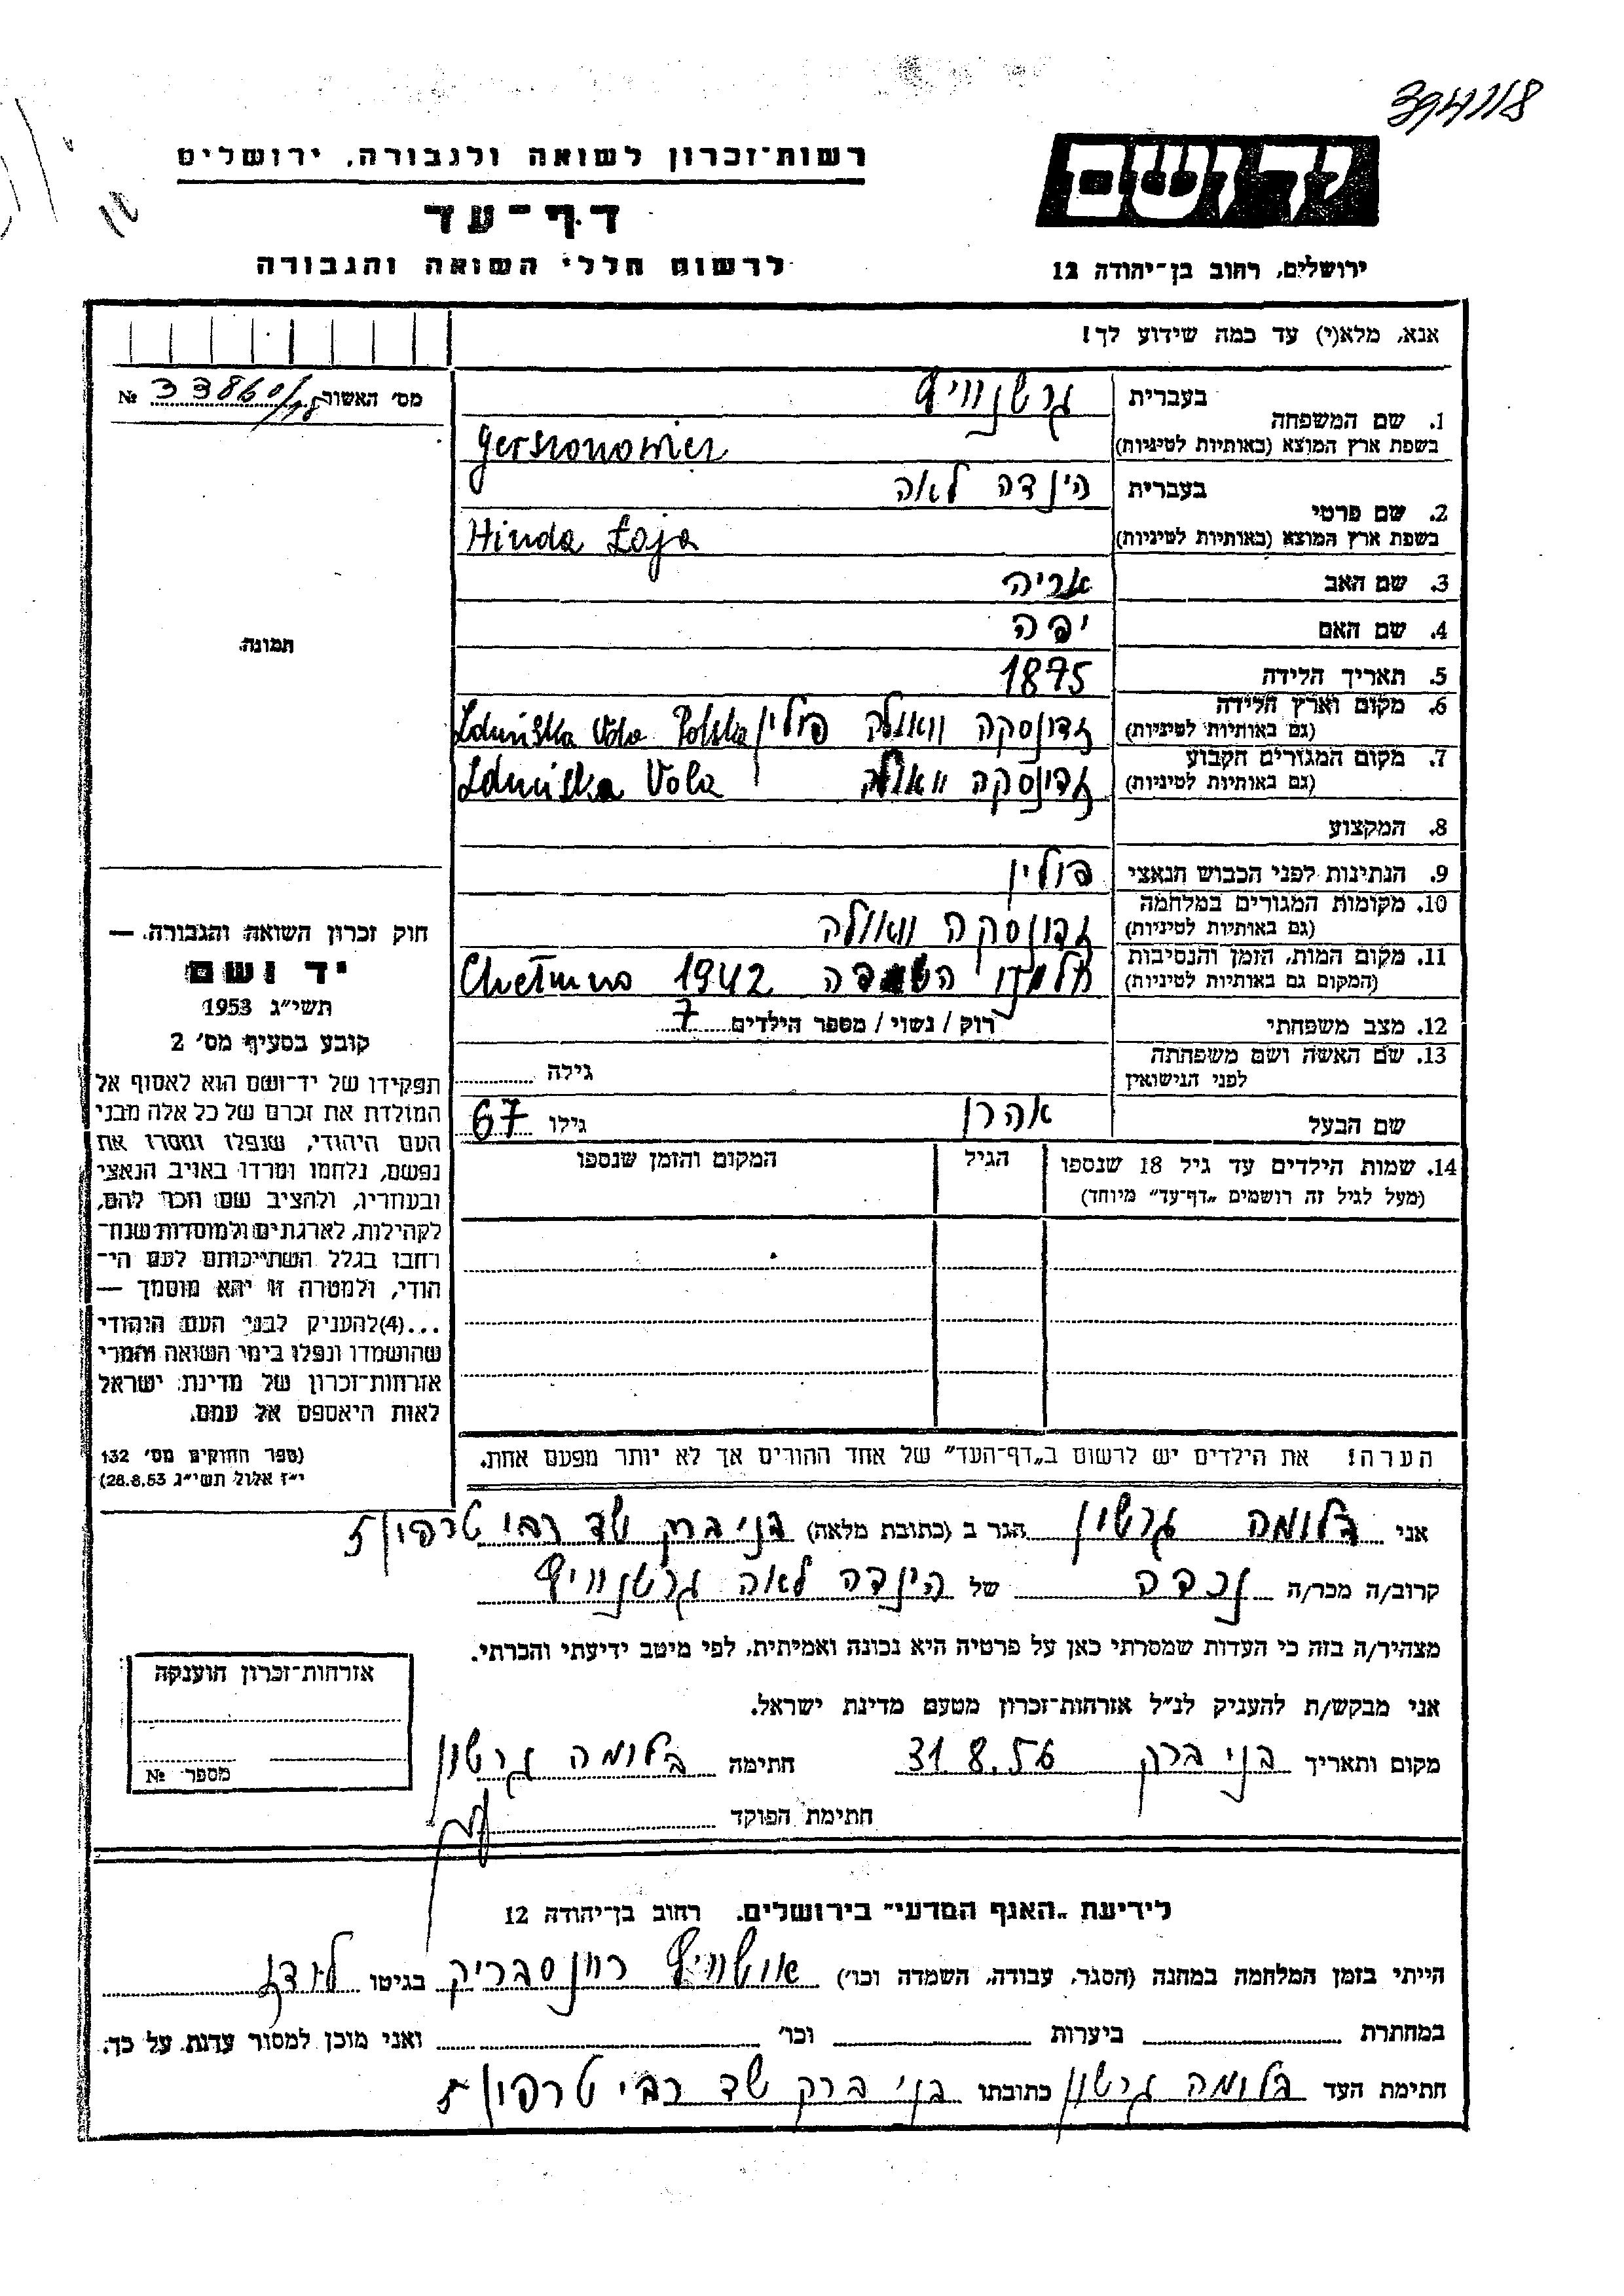 394118
רשות־זכרון לשואה ולגבורה, ירושלים
יד ושם
דף־עד
לרשום חללי השואה והגבורה
ירושלים, רחוב בן־יהודה 12
אנא, מלא(י) עד כמה שידוע לך!
מס׳ האשור № 33860/18
1. שם המשפחה
בעברית גרשנוויץ
בשפת ארץ המוצא (באותיות לטיניות) Gerszonowicz
2. שם פרטי
בעברית הינדה לאה
בשפת ארץ המוצא (באותיות לטיניות) Hinda Łaja
3. שם האב אריה
4. שם האם יפה
5. תאריך הלידה 1875
6. מקום וארץ הלידה זדונסקה וואולה פולין Zduńska Vola Polska
(גם באותיות לטיניות)
7. מקום המגורים הקבוע זדונסקה וואולה Zduńska Vola
(גם באותיות לטיניות)
8. המקצוע
9. הנתינות לפני הכבוש הנאצי פולין
10. מקומות המגורים במלחמה זדונסקה וואולה
(גם באותיות לטיניות)
11. מקום המות, הזמן והנסיבות חלמנו השמדה 1942 Chełmno
(המקום גם באותיות לטיניות)
12. מצב משפחתי רוק / נשוי / מספר הילדים 7
13. שם האשה ושם משפחתה
לפני הנישואין
גילה
שם הבעל אהרן גילו 67
14. שמות הילדים עד גיל 18 שנספו
(מעל לגיל זה רושמים „דף־עד” מיוחד)
הגיל
המקום והזמן שנספו
הערה! את הילדים יש לרשום ב„דף־העד” של אחד ההורים אך לא יותר מפעם אחת.
תמונה
חוק זכרון השואה והגבורה —
יד ושם
תשי״ג 1953
קובע בסעיף מס׳ 2
תפקידו של יד־ושם הוא לאסוף אל
המולדת את זכרם של כל אלה מבני
העם היהודי, שנפלו ומסרו את
נפשם, נלחמו ומרדו באויב הנאצי
ובעוזריו, ולהציב שם וזכר להם,
לקהילות, לארגונים ולמוסדות שנח־
רבו בגלל השתייכותם לעם הי־
הודי, ולמטרה זו יהא מוסמך —
...(4)להעניק לבני העם היהודי
שהושמדו ונפלו בימי השואה והמרי
אזרחות־זכרון של מדינת ישראל
לאות היאספם אל עמם.
(ספר החוקים מס׳ 132
י״ז אלול תשי״ג 28.8.53)
אני בלומה גרשון הגר ב (כתובת מלאה) בני ברק שד רבי טרפון 5
קרוב/ה מכר/ה נכדה של הינדה לאה גרשנוויץ
מצהיר/ה בזה כי העדות שמסרתי כאן על פרטיה היא נכונה ואמיתית, לפי מיטב ידיעתי והכרתי.
אני מבקש/ת להעניק לנ״ל אזרחות־זכרון מטעם מדינת ישראל.
מקום ותאריך בני ברק 31.8.56 חתימה בלומה גרשון
חתימת הפוקד
אזרחות־זכרון הוענקה
מספר №
לידיעת „האגף המדעי” בירושלים, רחוב בן־יהודה 12
הייתי בזמן המלחמה במחנה (הסגר, עבודה, השמדה וכו׳) אושוויץ רוונסבריק בגיטו לאדז
במחתרת ביערות וכו׳ ואני מוכן למסור עדות על כך.
חתימת העד בלומה גרשון כתובתו בני ברק שד רבי טרפון 5